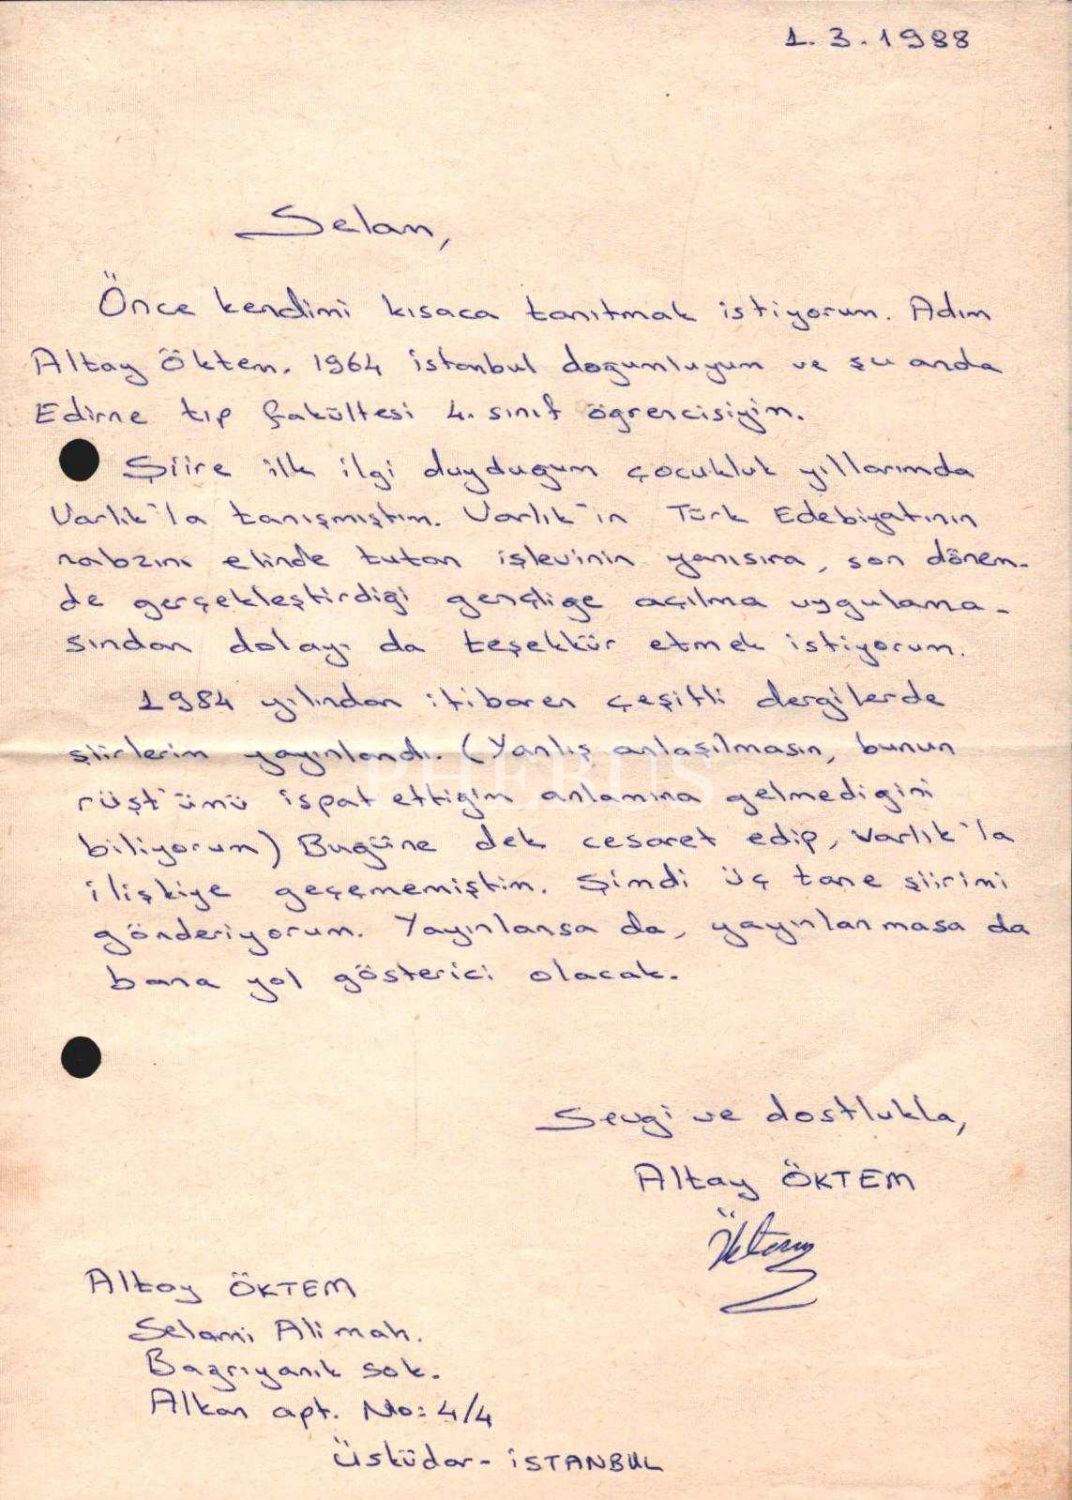 1.3.1988
Selam,
Önce kendimi kısaca tanıtmak istiyorum. Adım
Altay Öktem. 1964 İstanbul doğumluyum ve şu anda
Edirne tıp fakültesi 4. sınıf öğrencisiyim.
Şiire ilk ilgi duyduğum çocukluk yıllarımda
Varlık'la tanışmıştım. Varlık'ın Türk Edebiyatının
nabzını elinde tutan işlevinin yanısıra, son dönem-
de gerçekleştirdiği gençliğe açılma uygulama-
sından dolayı da teşekkür etmek istiyorum.
1984 yılından itibaren çeşitli dergilerde
şiirlerim yayınlandı. (Yanlış anlaşılmasın, bunun
rüşt'ünü ispat ettiğim anlamına gelmediğini
biliyorum) Bugüne dek cesaret edip, Varlık'la
ilişkiye geçememiştim. Şimdi üç tane şiirimi
gönderiyorum. Yayınlansa da, yayınlanmasa da
bana yol gösterici olacak.
PHEBUS
Sevgi ve dostlukla,
Altay ÖKTEM
Öktem
Altay ÖKTEM
Selami Ali mah.
Bağrıyanık sok.
Alkan apt. No: 4/4
Üsküdar - İSTANBUL